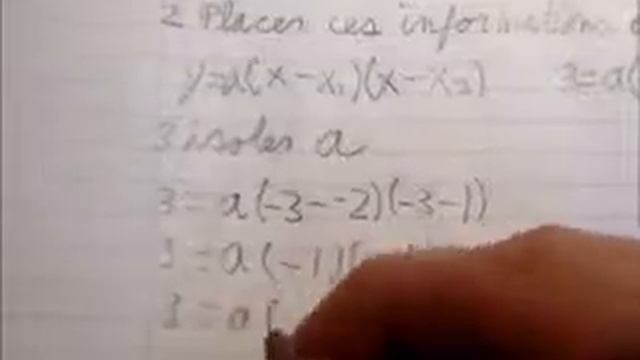 2 Placer ces informations
y=a(x-x₁)(x-x₂) 3=a(
3 isoler a
3=a(-3--2)(-3-1)
3=a(-1)(
3=a(